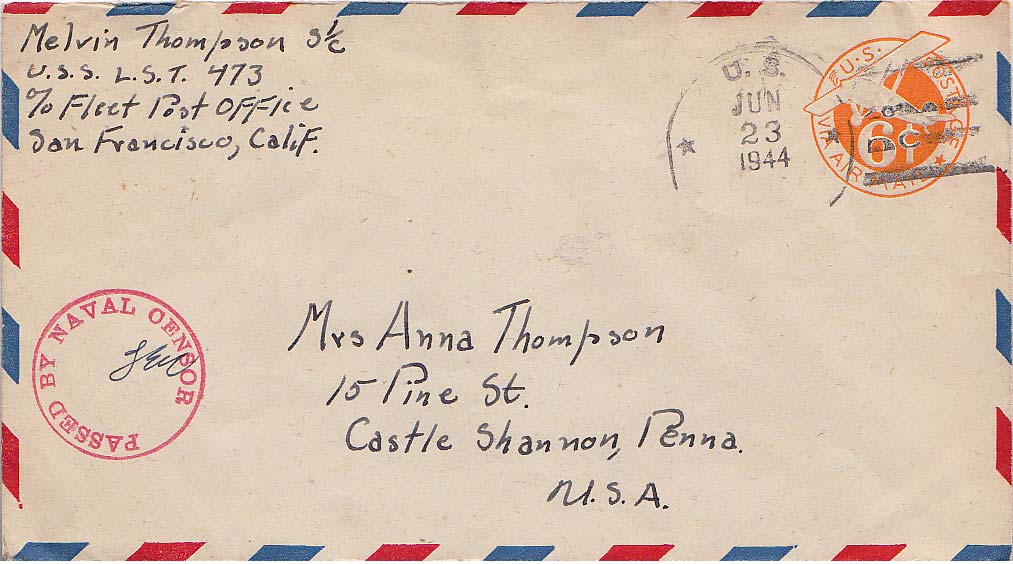 Melvin Thompson S 1/c
U.S.S. L.S.T. 473
c/o Fleet Post Office
San Francisco, Calif.
U. S.
JUN
23
1944
U.S. POSTAGE
6¢
VIA AIR MAIL
PASSED BY NAVAL CENSOR
Mrs Anna Thompson
15 Pine St.
Castle Shannon, Penna.
U.S.A.